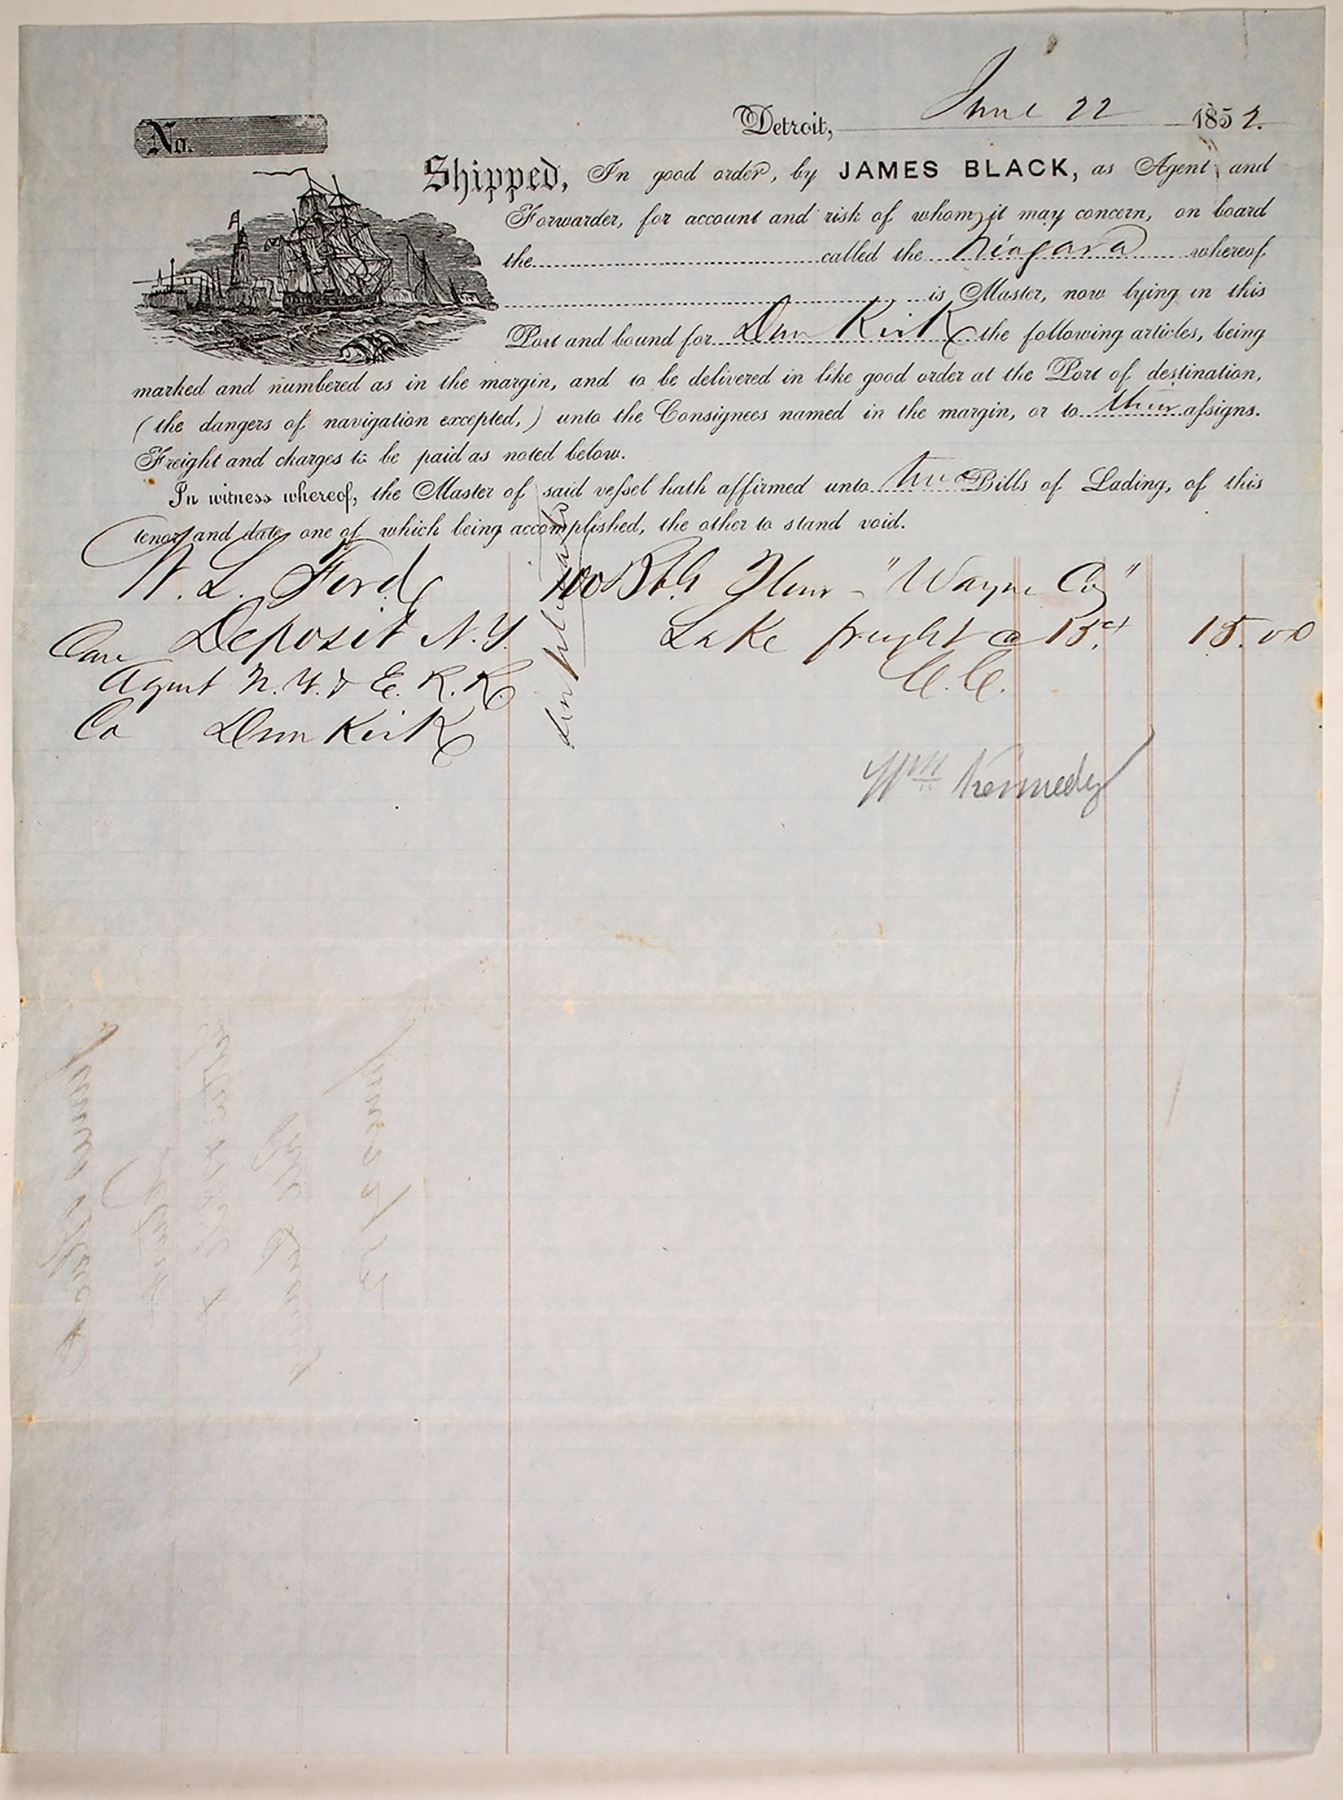 Detroit, June 22 1852.
No.
Shipped, In good order, by JAMES BLACK, as Agent and
Forwarder, for account and risk of whom it may concern, on board
the called the Niagara whereof
is Master, now lying in this
Port and bound for Dun Kirk the following articles, being
marked and numbered as in the margin, and to be delivered in like good order at the Port of destination,
(the dangers of navigation excepted,) unto the Consignees named in the margin, or to their assigns.
Freight and charges to be paid as noted below.
In witness whereof, the Master of said vessel hath affirmed unto two Bills of Lading, of this
tenor and date one of which being accomplished, the other to stand void.
W. L. Ford 100 Bbls Flour - "Wayne Co"
Deposit N.Y. Lake freight @ 15ct 15.00
Care Agent N.Y. & E. R. R. C.C.
Co Dun Kirk
Wm Kennedy